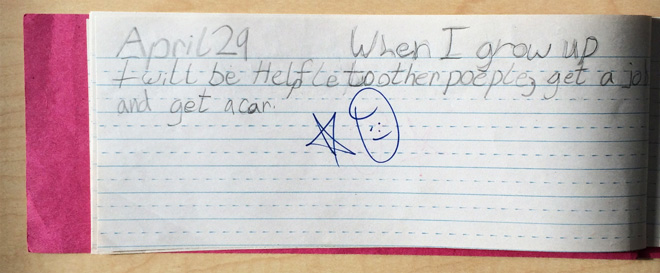 April 29 When I grow up
I will be Helfle to other poeple, get a job
and get a car.